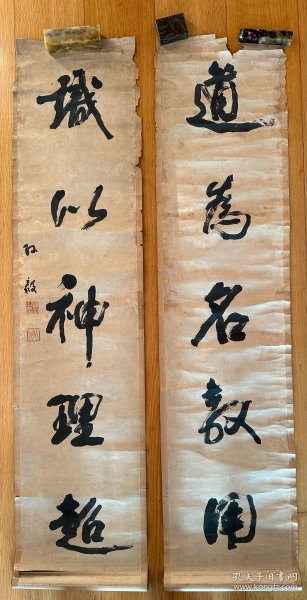 道為名教用
識以神理超
孔夫子旧书网